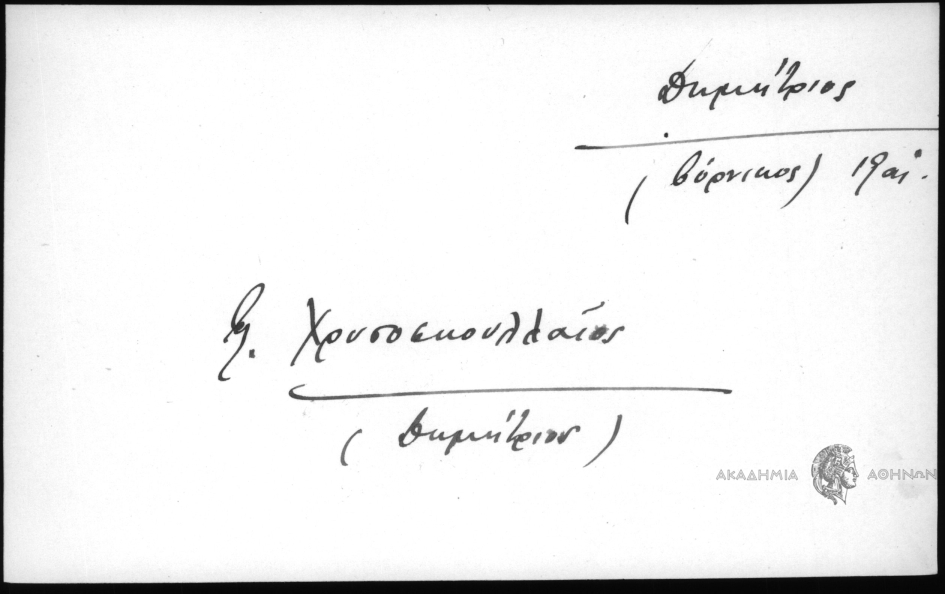 Δημήτριος
(βόρνικος) 19αι.
βλ. Χρυσοσκουλλαίος
(Δημήτριον)
ΑΚΑΔΗΜΙΑ ΑΘΗΝΩΝ